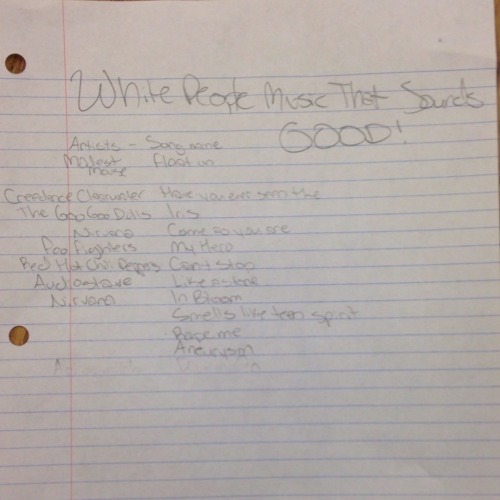 White People Music That Sounds
GOOD!
Artists - Song name
Modest Mouse Float on
Creedence Clearwater Have you ever seen the
The Goo Goo Dolls Iris
Nirvana Come as you are
Foo Fighters My Hero
Red Hot Chili Peppers Can't Stop
Audioslave Like a stone
Nirvana In Bloom
Smells like teen spirit
Rape me
Aneurysm